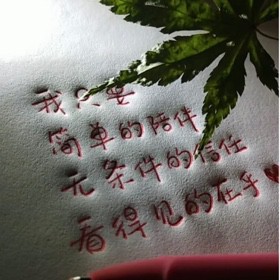 我只要
简单的陪伴
无条件的信任
看得见的在乎